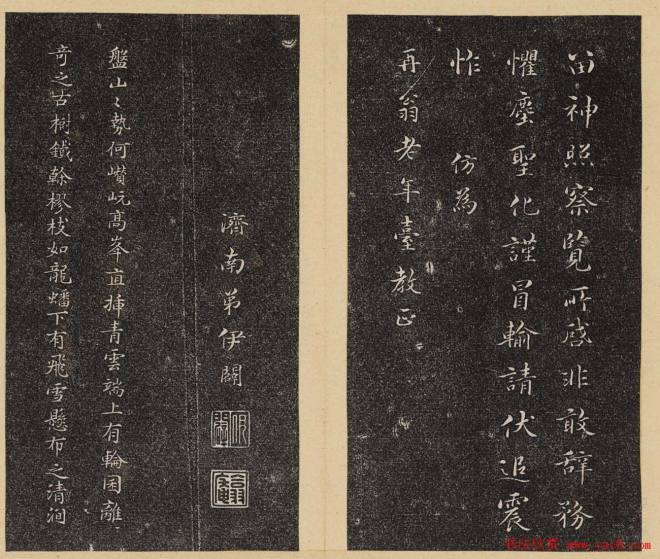 留神照察覽所啓非敢辭務
懼塵聖化謹冒輸請伏追震
怍 仿為
再翁老年臺教正
濟南弟伊闢
盤山〻勢何巑岏高峯直揷青雲端上有輪囷離
奇之古樹鐵榦樛枝如龍蟠下有飛雪懸布之清澗